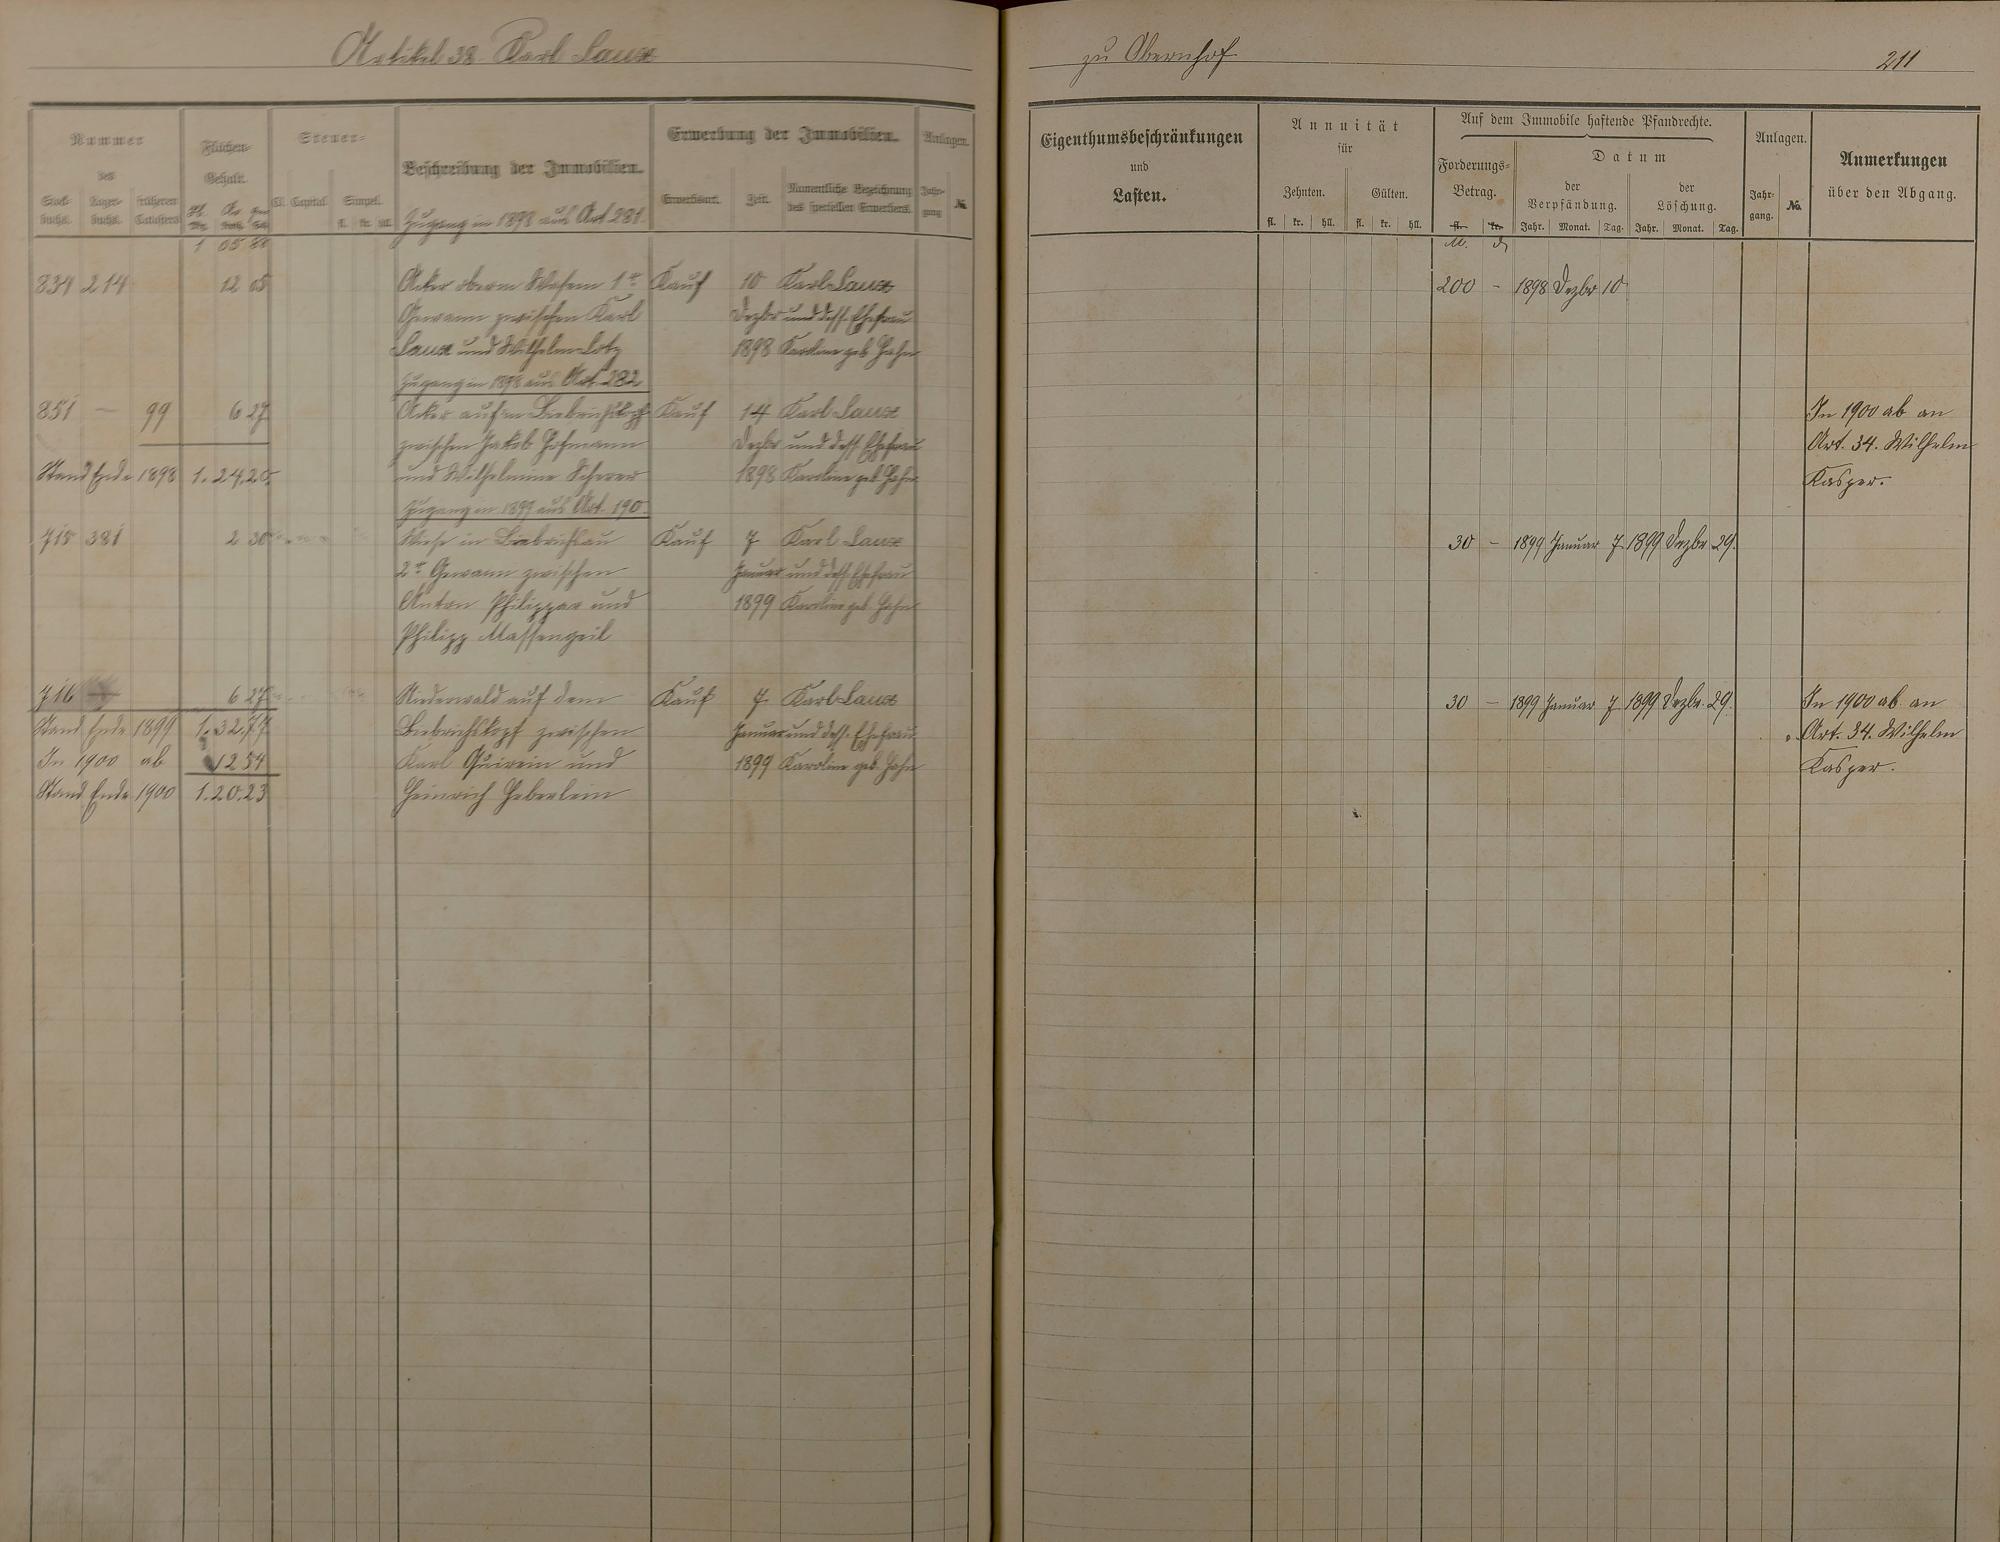 Artikel 38. Karl Laux
Nummer
des
Stock-
buchs.
Lager-
buchs.
früheren
Catasters
Flächen-
Gehalt.
Steuer-
Cl.
Capital
Simpel.
fl. kr. hll.
Beschreibung der Immobilien.
Zugang in 1898 aus Art 281.
Erwerbung der Immobilien.
Erwerbsart.
Zeit.
Namentliche Bezeichnung
des speciellen Erwerbers.
Anlagen.
Jahr-
gang
№
1 05 88
834 214 12 05 Acker oberm Wasem 1te Kauf 10 Karl Laux
Gewann zwischen Karl Dezbr und dess. Ehefrau
Laux und Wilhelm Lotz 1898 Karoline geb. Hahn
Zugang in 1898 aus Art. 282
851 — 99 6 27 Acker auf'm Biebrichskopf Kauf 14 Karl Laux
zwischen Jakob Hofmann Dezbr und dess Ehefrau
Stand Ende 1898 1.24.20. und Wilhelmine Scherer 1898 Karoline geb. Hahn
Zugang in 1899 aus Art. 190.
715 381 2 30 Wiese in Biebrichsau Kauf 7 Karl Laux
2te Gewann zwischen Januar und dess. Ehefrau
Anton Philippar und 1899 Karoline geb. Hahn
Philipp Massengeil
716 — 6 27 Niederwald auf dem Kauf 7 Karl Laux
Stand Ende 1899 1.32.77 Biebrichskopf zwischen Januar und dess. Ehefrau
In 1900 ab 12 54 Karl Quirein und 1899 Karoline geb. Hahn
Stand Ende 1900 1.20.23 Heinrich Heberlein
zu Obernhof
211
Eigenthumsbeschränkungen
und
Lasten.
Annuität
für
Zehnten.
Gülten.
fl. kr. hll. fl. kr. hll.
Auf dem Immobile haftende Pfandrechte.
Forderungs-
Betrag.
fl. kr.
M. d
Datum
der
Verpfändung.
der
Löschung.
Jahr. Monat. Tag. Jahr. Monat. Tag.
Anlagen.
Jahr-
gang.
No.
Anmerkungen
über den Abgang.
200 - 1898 Dezbr 10
In 1900 ab an
Art. 34. Wilhelm
Kasper.
30 - 1899 Januar 7 1899 Dezbr 29.
30 - 1899 Januar 7 1899 Dezbr. 29.
In 1900 ab an
Art. 34. Wilhelm
Kasper.